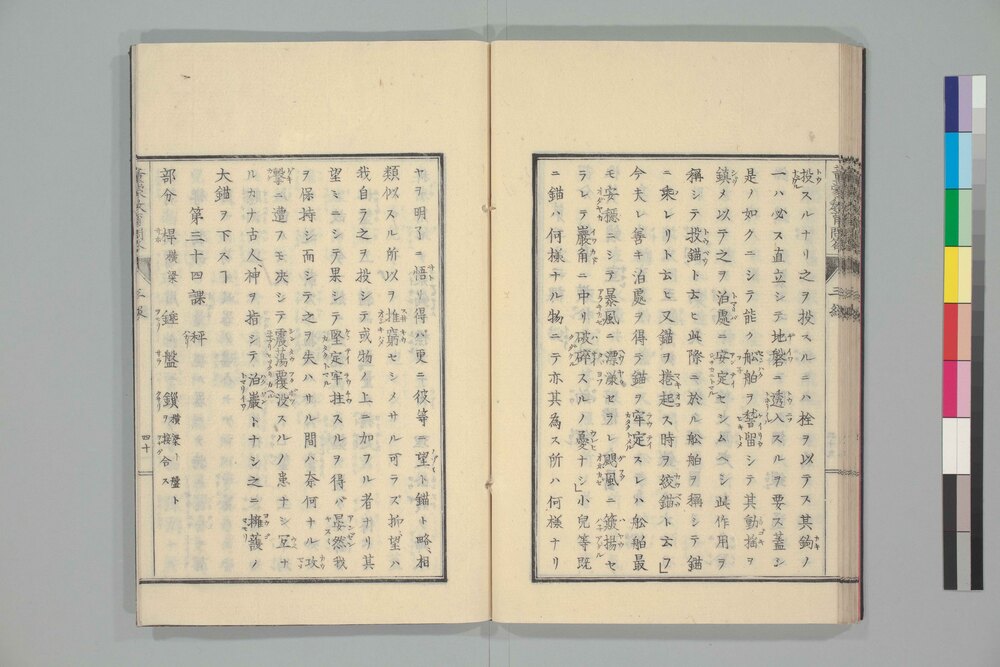 投スルナリ之ヲ投スルニハ栓ヲ以テス其鉤ノ
一ハ必ス直立シテ地盤ニ透入スルヲ要ス蓋シ
是ノ如クニシテ能ク舩舶ヲ稽留シテ其動揺ヲ
鎮メ以テ之ヲ泊處ニ安定セシムベシ此作用ヲ
稱シテ投錨ト云ヒ與降ニ於ル舩舶ヲ稱シテ錨
ニ乗レリト云ヒ又錨ヲ捲起ス時ヲ絞錨ト云フ」
今夫レ善キ泊處ヲ得テ錨ヲ牢定スレハ舩舶最
モ安穏ニシテ暴風ニ漂瀁セラレ颶風ニ簸揚セ
ラレテ巌角ニ中リ破碎スルノ憂ナシ」小兒等既
ニ錨ハ何様ナル物ニテ亦其為ス所ハ何様ナリ
ヤヲ明了ニ悟リ得ハ更ニ彼等ニ望ト錨ト略相
類似スル所以ヲ推窮セシノサル可ラズ抑望ハ
我自ラ之ヲ投シテ或物ノ上ニ加フル者ナリ其
望ミニシテ果シテ堅定牢拄スルヲ得バ晏然我
ヲ保持シ而シテ之ヲ失ハサル間ハ奈何ナル攻
撃ニ遭フモ决シテ震荡覆没スルノ患ナシ冝ナ
ルカナ古人神ヲ指シテ泊巌トナシ之ニ擁護ノ
大錨ヲ下スヿ
第三十四課 秤
部分 桿横梁 錘 盤 鎖横梁ト盤トヲ接合ス
四十